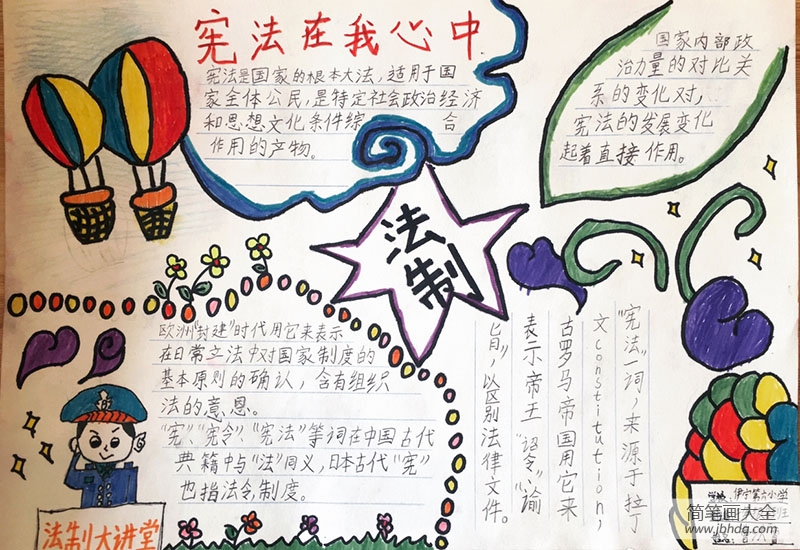 宪法在我心中
宪法是国家的根本大法，适用于国
家全体公民，是特定社会政治经济
和思想文化条件综 合
作用的产物。
国家内部政
治力量的对比关
系的变化对，
宪法的发展变化
起着直接作用。
法制
欧洲“封建”时代用它来表示
在日常立法中对国家制度的
基本原则的确认，含有组织
法的意思。
“宪”、“宪令”、“宪法”等词在中国古代
典籍中与“法”同义，日本古代“宪”
也指法令，制度。
“宪法”一词，来源于拉丁
文constitution，
古罗马帝国用它来
表示帝王“诏令”、“谕
旨”，以区别法律文件。
法制大讲堂
学校：伊宁第六小学
简笔画大全
www.jbhdq.com